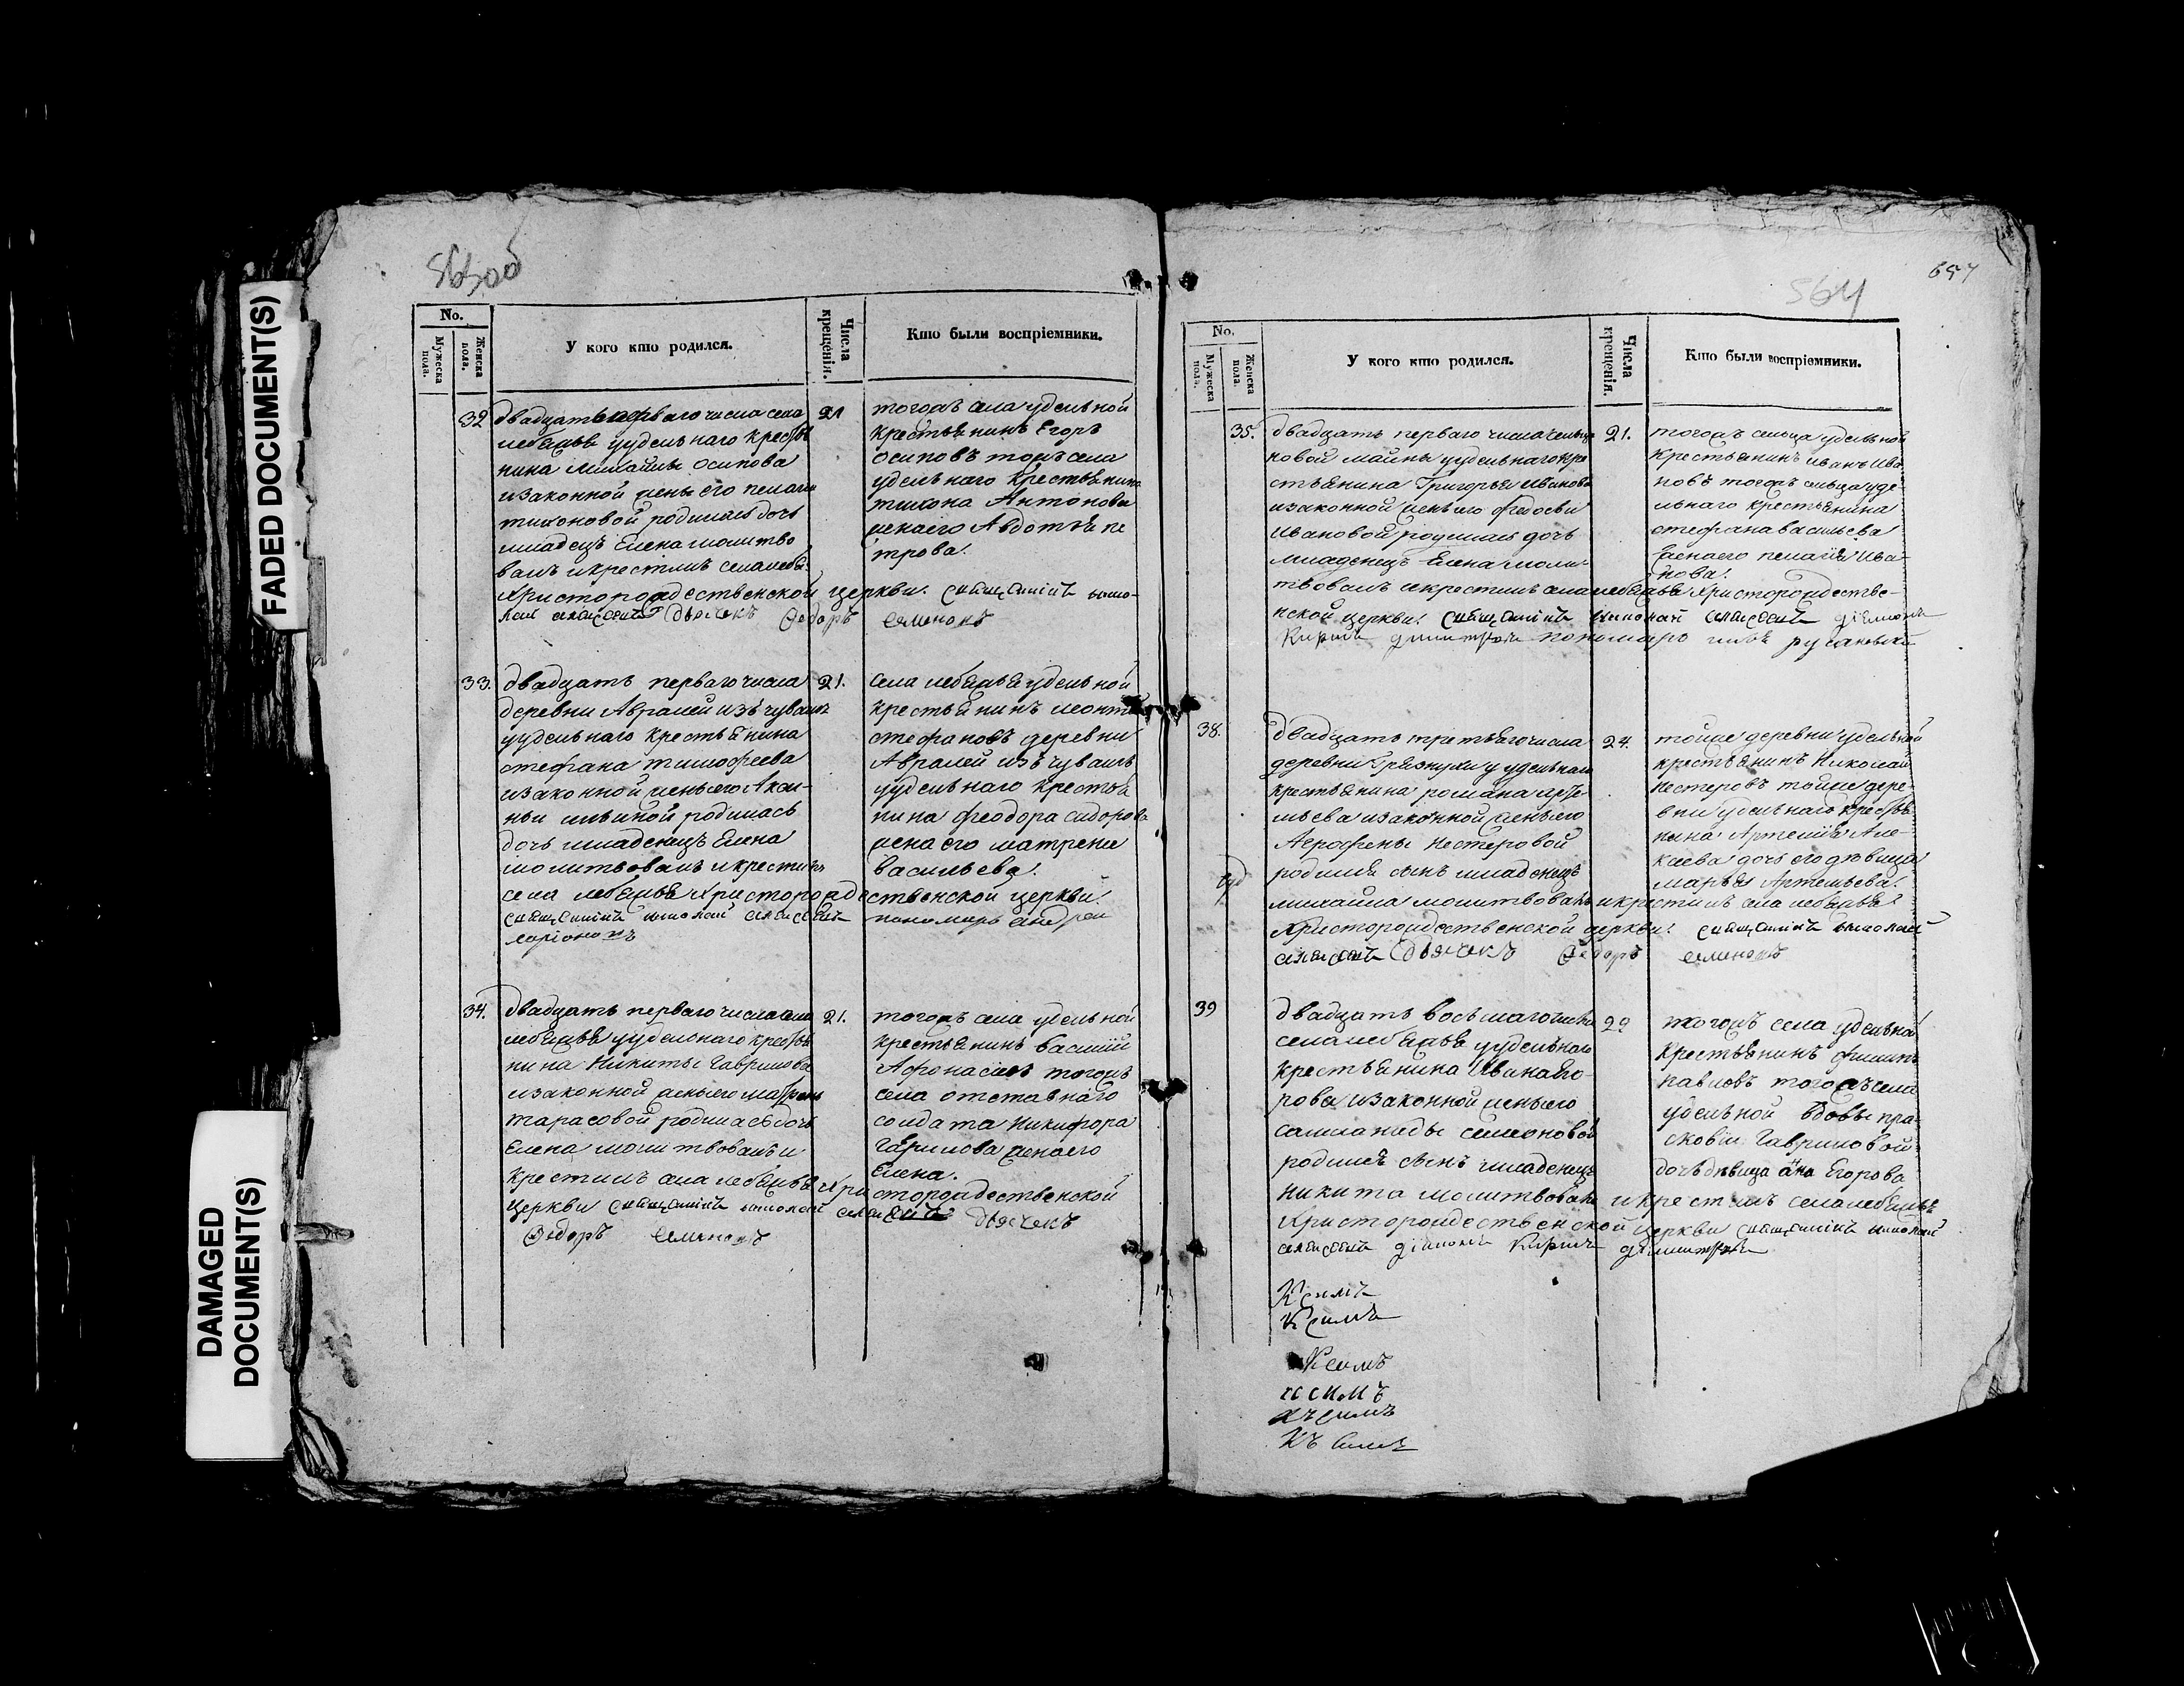 FADED DOCUMENT(S)
DAMAGED
DOCUMENT(S)
563об
No.
Мужеска пола.
Женска пола.
У кого кто родился.
Числа крещенія.
Кто были воспріемники.
32
двадцать перваго числа села
лебяжья уудельнаго крестья
нина Михайлы осипова
изаконной жены его пелагеи
тихоновой родилась дочь
младецъ Елена молитво
валъ икрестилъ села лебя.
Христорождественской церкви. священникъ нико-
лай алексеевъ дьячекъ Ѳедоръ семеновъ
21
тогожъ села удельной
крестьянинъ Егоръ
осиповъ тожъ села
удельнаго крестьянина
тихона Антонова
жена его Авдотья пе
трова.
33.
двадцать перваго числа
деревни Авралей изъ чувашъ
уудельнаго крестьянина
стефана тимофеева
изаконной жены его Акси-
ньи ильиной родилась
дочь младенецъ Елена
молитвовалъ икрестилъ
села лебяжья Христорождественской церкви.
священникъ николай алексеевъ пономарь андрей
ларіоновъ
21.
села лебяжья удельной
крестьянинъ леонтей
стефановъ деревни
Авралей изъ чувашъ
уудельнаго крестья
нина феодора сидорова
жена его матрена
васильева.
34.
двадцать перваго числа села
лебяжья уудельнаго крестья
нина Никиты Гаврилова
изаконной жены его матрены
тарасовой родилась дочь
Елена молитвовалъ и
крестилъ села лебяжья Христорождественской
церкви священникъ николай алексеевъ дьячекъ
Ѳедоръ семеновъ
21.
тогожъ села удельной
крестьянинъ василій
Афонасіевъ тогожъ
села отставнаго
солдата Никифора
Гаврилова жена его
Елена.
564
657
No.
Мужеска пола.
Женска пола.
У кого кто родился.
Числа крещенія.
Кто были воспріемники.
35.
двадцать перваго числа сельца
новой майны уудельнаго кре
стьянина Григорья Иванова
изаконной жены его федосьи
Ивановой родилась дочь
младенецъ Елена моли-
твовалъ икрестилъ села лебяжья Христорождестве-
нской церкви. священникъ николай алексеевъ діаконъ
Кирилъ димитріевъ пономарь русановскій
21.
тогожъ сельца удельной
крестьянинъ иванъ Ива
новъ тогожъ сельца уде-
льнаго крестьянина
стефана васильева
жена его пелагія Ива-
нова.
38.
двадцать третьяго числа
деревни Грязнухи у удельнаго
крестьянина романа арте-
мьева изаконной жены его
Аграфены Нестеровой
родился сынъ младенецъ
михайла молитвовалъ икрестилъ села лебяжья
Христорождественской церкви. священникъ николай
алексеевъ дьячекъ Ѳедоръ семеновъ
24.
тойже деревни удельной
крестьянинъ Николай
Нестеровъ тойже дере-
вни удельнаго крестья-
нина Артемія Але-
ксева дочь его девица
марья Артемьева.
39
двадцать восьмаго числа
села лебяжья уудельнаго
крестьянина Ивана его-
рова изаконной жены его
саломаниды семеновой
родился сынъ младенецъ
Никита молитвовалъ и крестилъ села лебяжья
Христорождественской церкви священникъ николай
алексеевъ діаконъ Кирилъ димитріевъ
29
тогожъ села удельной
крестьянинъ филипъ
павловъ тогожъ села
удельной вдовы пра-
сковіи Гавриловой
дочь девица анна Егорова
К симъ
К симъ
К симъ
к симъ
къ симъ
Къ симъ